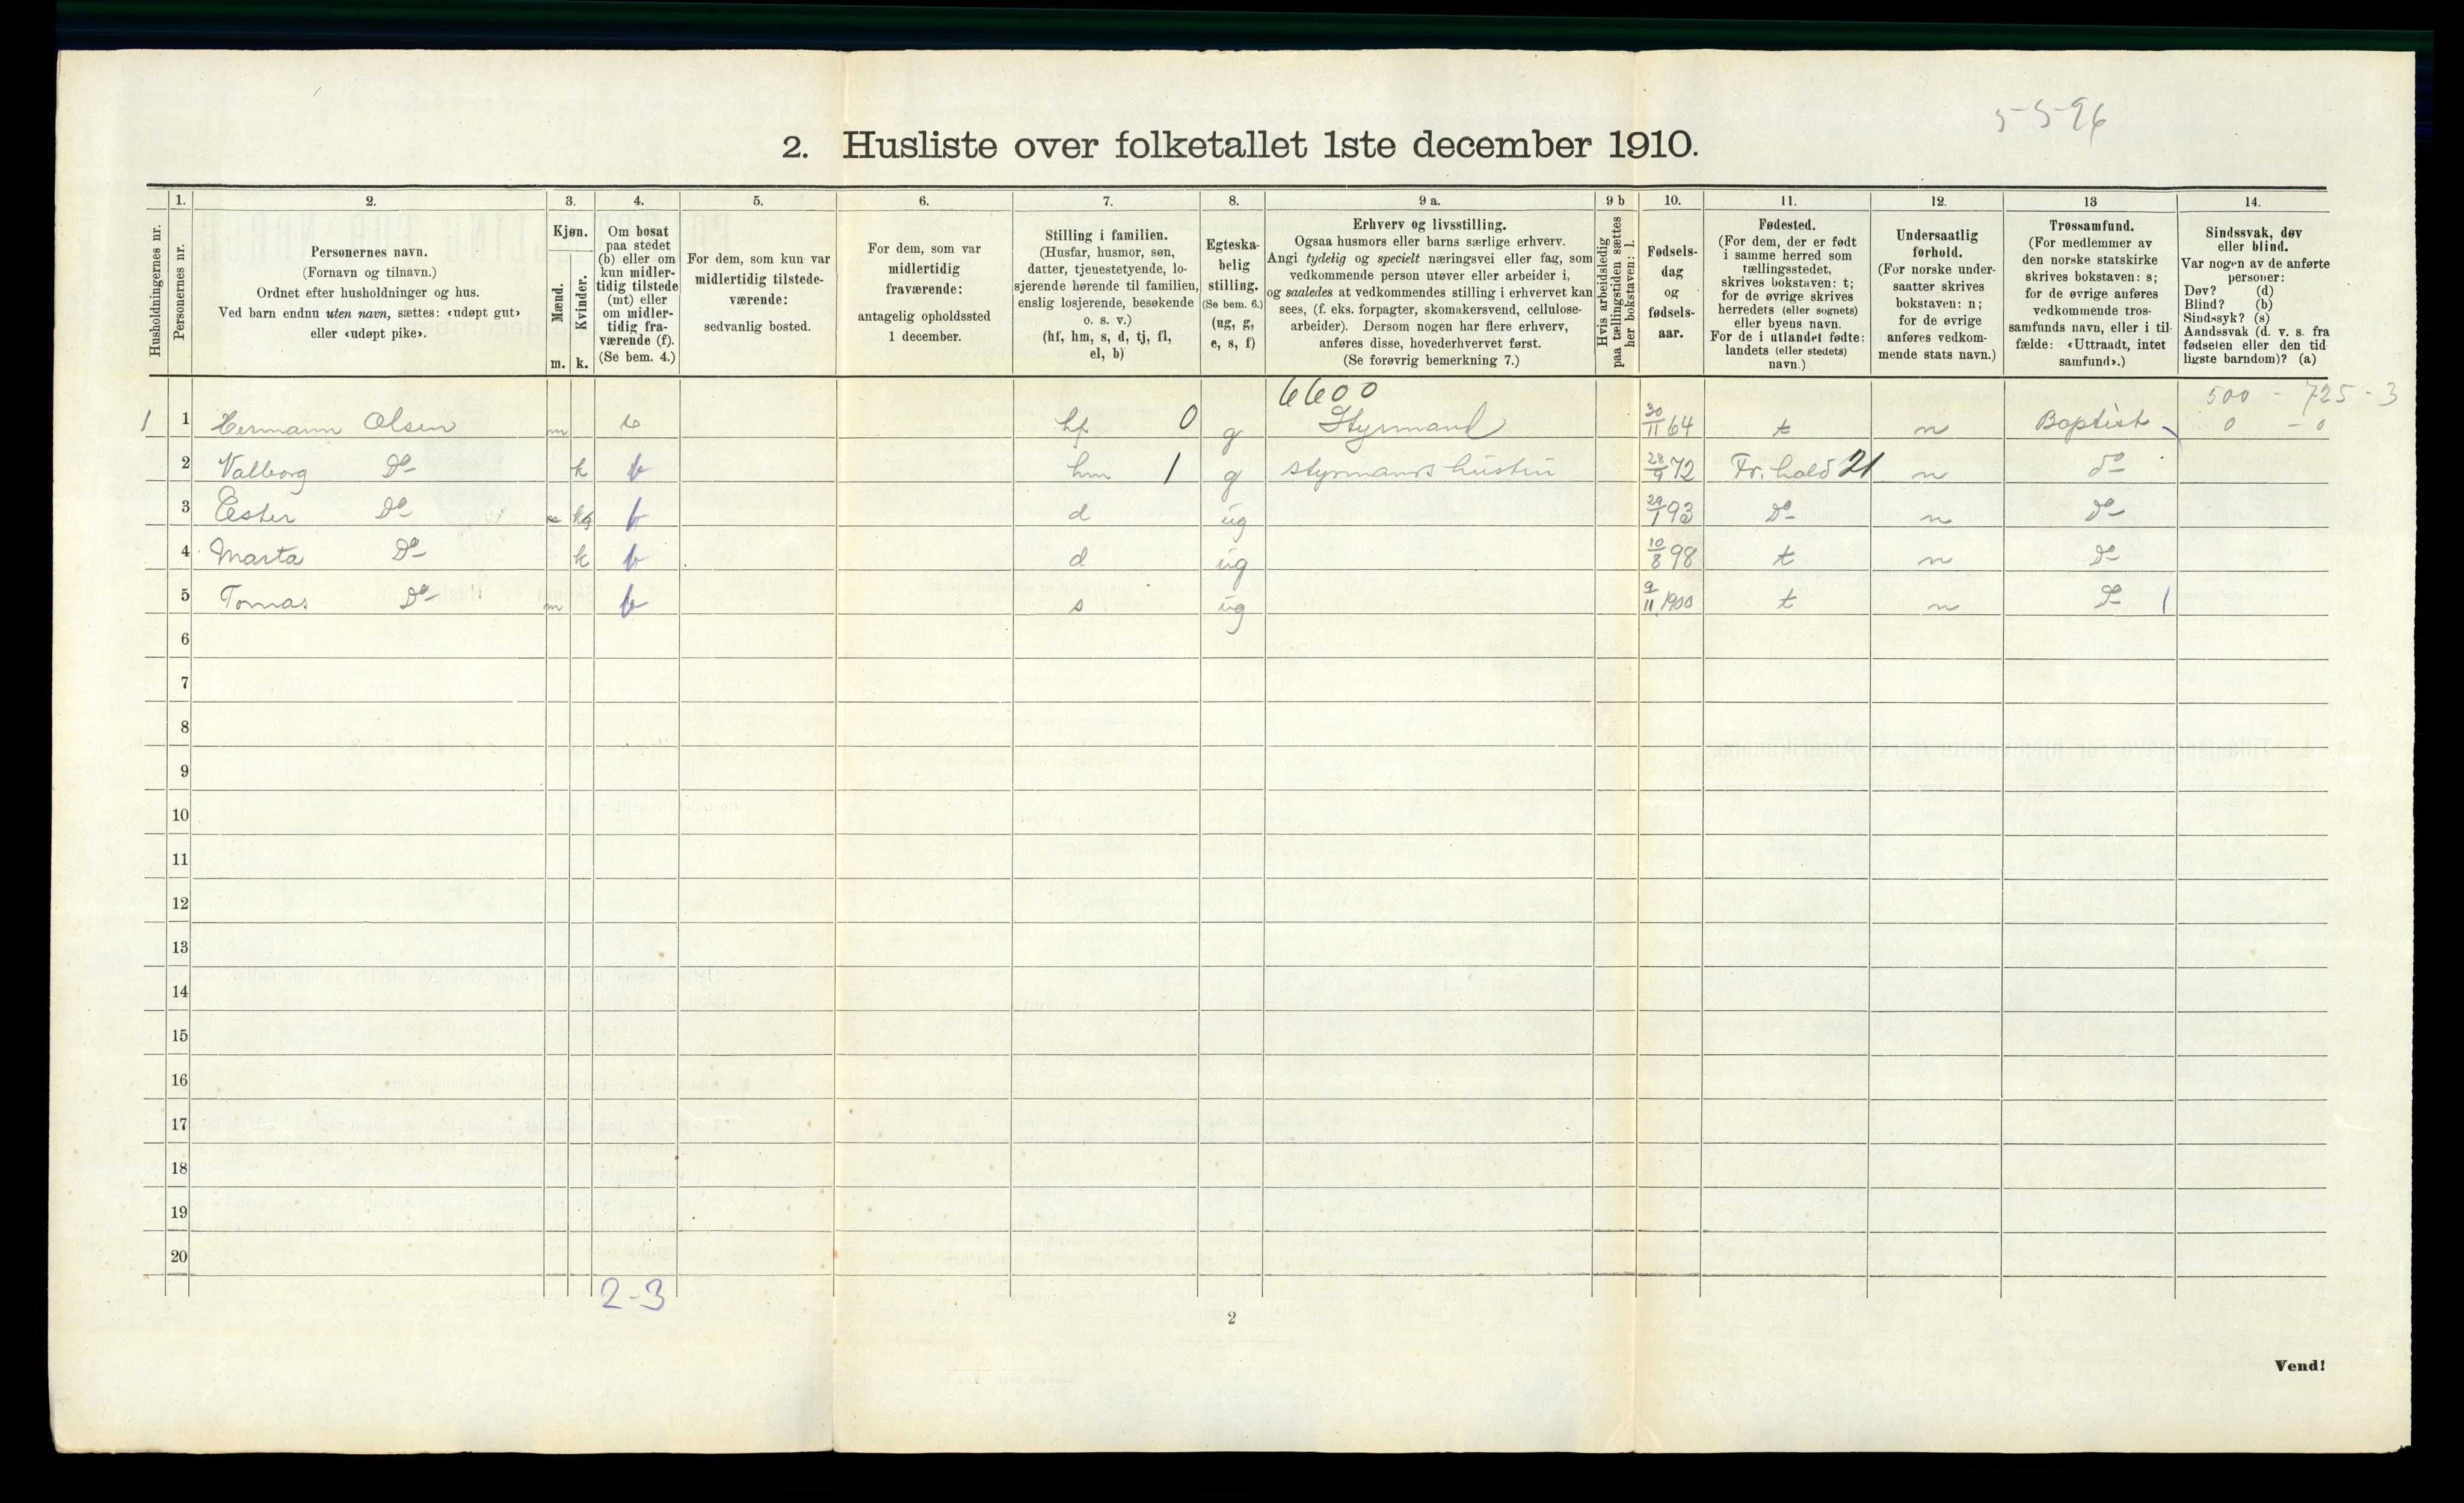 5-5-96
2. Husliste over folketallet 1ste december 1910.
Husholdningernes nr.
1.
Personernes nr.
2.
Personernes navn.
(Fornavn og tilnavn.)
Ordnet efter husholdninger og hus.
Ved barn endnu uten navn, sættes: «udøpt gut»
eller «udøpt pike».
3.
Kjøn.
Mænd.
m.
Kvinder.
k.
4.
Om bosat
paa stedet
(b) eller om
kun midler-
tidig tilstede
(mt) eller
om midler-
tidig fra-
værende (f).
(Se bem. 4.)
5.
For dem, som kun var
midlertidig tilstede-
værende:
sedvanlig bosted.
6.
For dem, som var
midlertidig
fraværende:
antagelig opholdssted
1 december.
7.
Stilling i familien.
(Husfar, husmor, søn,
datter, tjenestetyende, lo-
sjerende hørende til familien,
enslig losjerende, besøkende
o. s. v.)
(hf, hm, s, d, tj, fl,
el, b)
8.
Egteska-
belig
stilling.
(Se bem. 6.)
(ug, g,
e, s, f)
9 a.
Erhverv og livsstilling.
Ogsaa husmors eller barns særlige erhverv.
Angi tydelig og specielt næringsvei eller fag, som
vedkommende person utøver eller arbeider i,
og saaledes at vedkommendes stilling i erhvervet kan
sees, (f. eks. forpagter, skomakersvend, cellulose-
arbeider). Dersom nogen har flere erhverv,
anføres disse, hovederhvervet først.
(Se forøvrig bemerkning 7.)
9 b
Hvis arbeidsledig
paa tællingstiden sættes
her bokstaven: l.
10.
Fødsels-
dag
og
fødsels-
aar.
11.
Fødested.
(For dem, der er født
i samme herred som
tællingsstedet,
skrives bokstaven: t;
for de øvrige skrives
herredets (eller sognets)
eller byens navn.
For de i utlandet fødte:
landets (eller stedets)
navn.)
12.
Undersaatlig
forhold.
(For norske under-
saatter skrives
bokstaven: n;
for de øvrige
anføres vedkom-
mende stats navn.)
13
Trossamfund.
(For medlemmer av
den norske statskirke
skrives bokstaven: s;
for de øvrige anføres
vedkommende tros-
samfunds navn, eller i til-
fælde: «Uttraadt, intet
samfund».)
14.
Sindssvak, døv
eller blind.
Var nogen av de anførte
personer:
Døv? (d)
Blind? (b)
Sindssyk? (s)
Aandssvak (d. v. s. fra
fødselen eller den tid
ligste barndom)? (a)
6600 500 - 725 - 3
1 1 Hermann Olsen m b hf 0 g Styrmand 30/11 64 t n Baptist 0 - 0
2 Valborg Do k b hm 1 g styrmands hustru 28/9 72 Fr.hald 21 n do
3 Ester Do k b d ug 29/1 93 Do n Do
4 Marta Do k b d ug 10/8 98 t n Do
5 Tomas Do m b s ug 9/11 1900 t n Do 1
6
7
8
9
10
11
12
13
14
15
16
17
18
19
20
2-3
2
Vend!